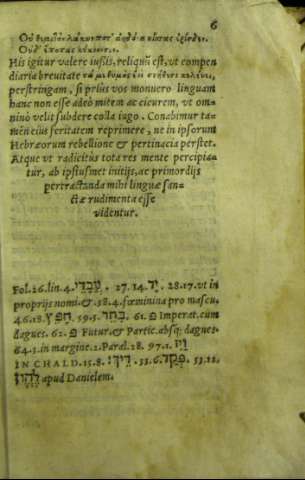 6
His igitur valere iussis, reliquũ est, vt compen
diaria breuitate τὰ μιθμὸς ἐνὶ στήθεσι κελεύει,
perstringam, si priùs vos monuero linguam
hanc non esse adeò mitem ac cicurem, vt om-
nino velit subdere colla iugo. Conabimur ta-
mẽ eius feritatem reprimere, ne in ipsorum
Hebræorum rebellione & pertinacia perstet.
Atque vt radicitùs tota res mente percipia-
tur, ab ipsiusmet initijs, ac primordijs
pertractanda mihi linguæ san-
ctæ rudimenta esse
videntur.
Fol. 26. lin. 4. עֲבָדַי. 27. 14. יָד. 28. 17. vt in
proprijs nomi. & 38. 4. fœminina pro mascu.
46. 18. חָפֵץ. 59. 5. בָּחַר. 61. פ Imperat. cum
dages. 62. פ Futur. & Partic. absq; dages.
64. 3. in margine. 2. Paral. 28. 97. 1. וַיְ
IN CHALD. 15. 8. דֵּיךְ. 33. 6. פְּקַד. 53. 22.
לֶהֱוֹן apud Danielem.